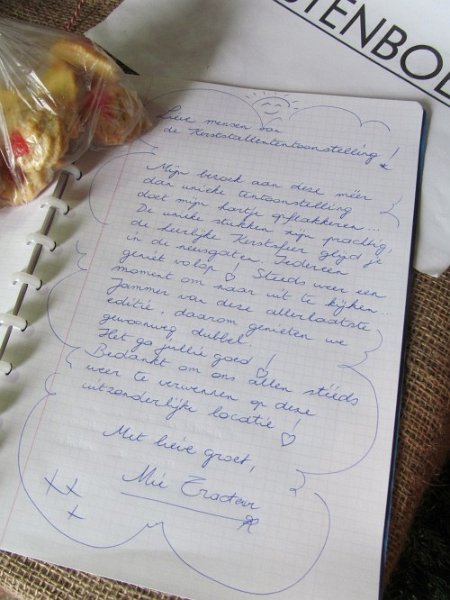 STENBOL
Lieve mensen van
de Kerststallententoonstelling!
Mijn bezoek aan deze méér
dan unieke tentoonstelling
doet mijn hartje opflakkeren...
De unieke stukken zijn prachtig,
de heerlijke Kerstsfeer glijd je
in de neusgaten. Iedereen
geniet volop! ♡ Steeds weer een
moment om naar uit te kijken...
Jammer van deze allerlaatste
editie, daarom genieten we
gewoonweg dubbel.
Het ga jullie goed!
Bedankt om ons allen stééds
weer te verwennen op deze
uitzonderlijke locatie! ♡
Met lieve groet,
Mie Tracteur
xx
x